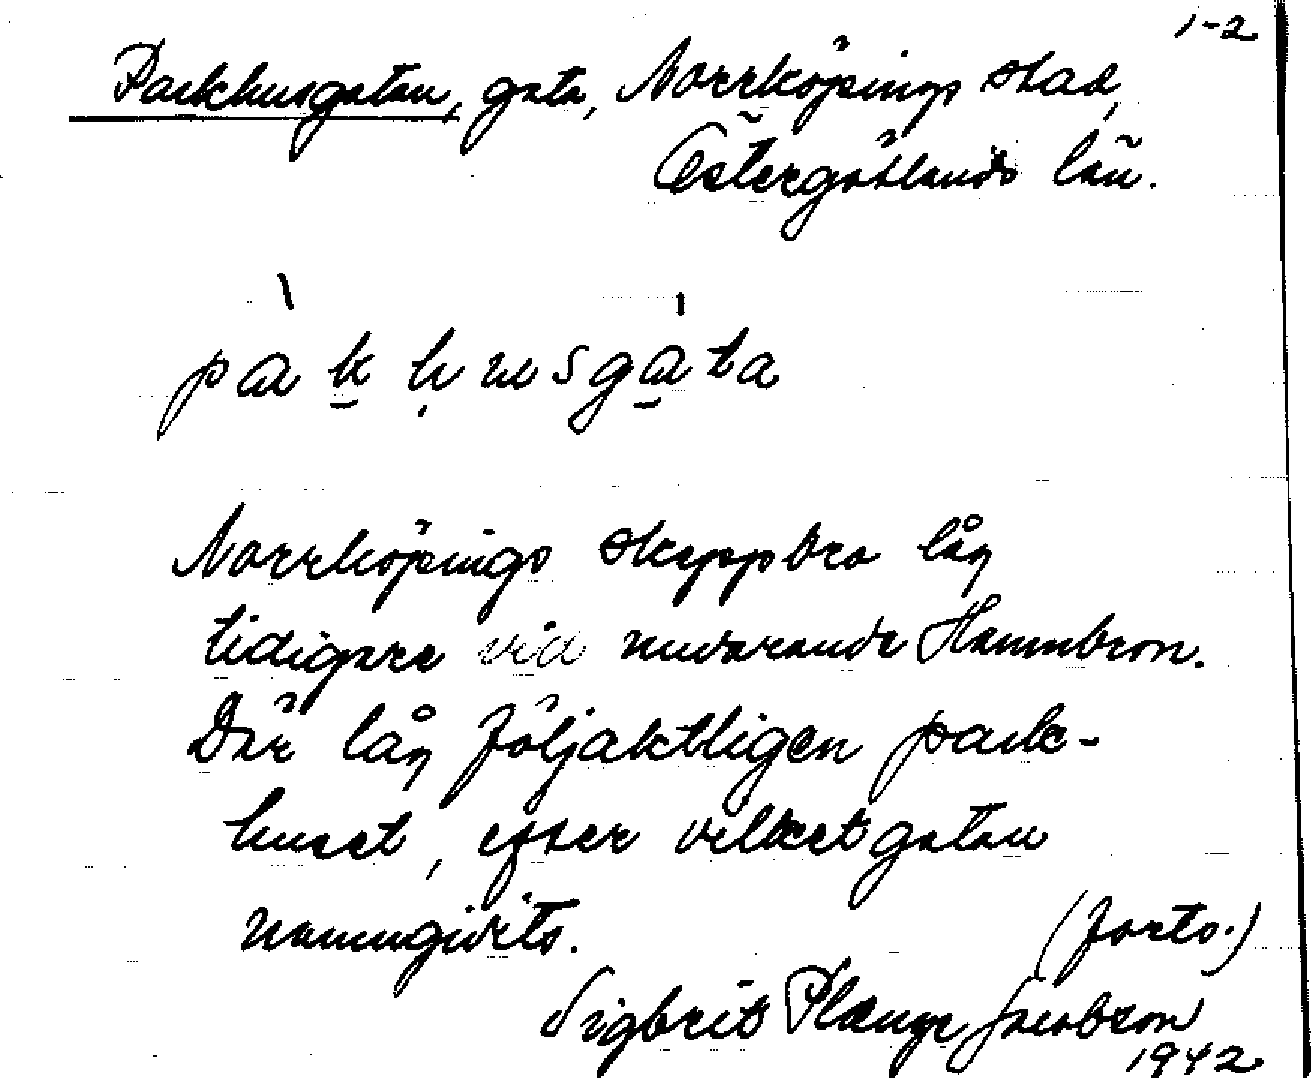 1-2
Packhusgatan, gata, Norrköpings stad,
Östergötlands län.
pàkhusgata
Norrköpings skeppsbro låg
tidigare vid nuvarande Hamnbron.
Där låg följaktligen pack-
huset, efter vilket gatan
namngivits.
(forts.)
Sigbrit Plænge Jacobson
1942